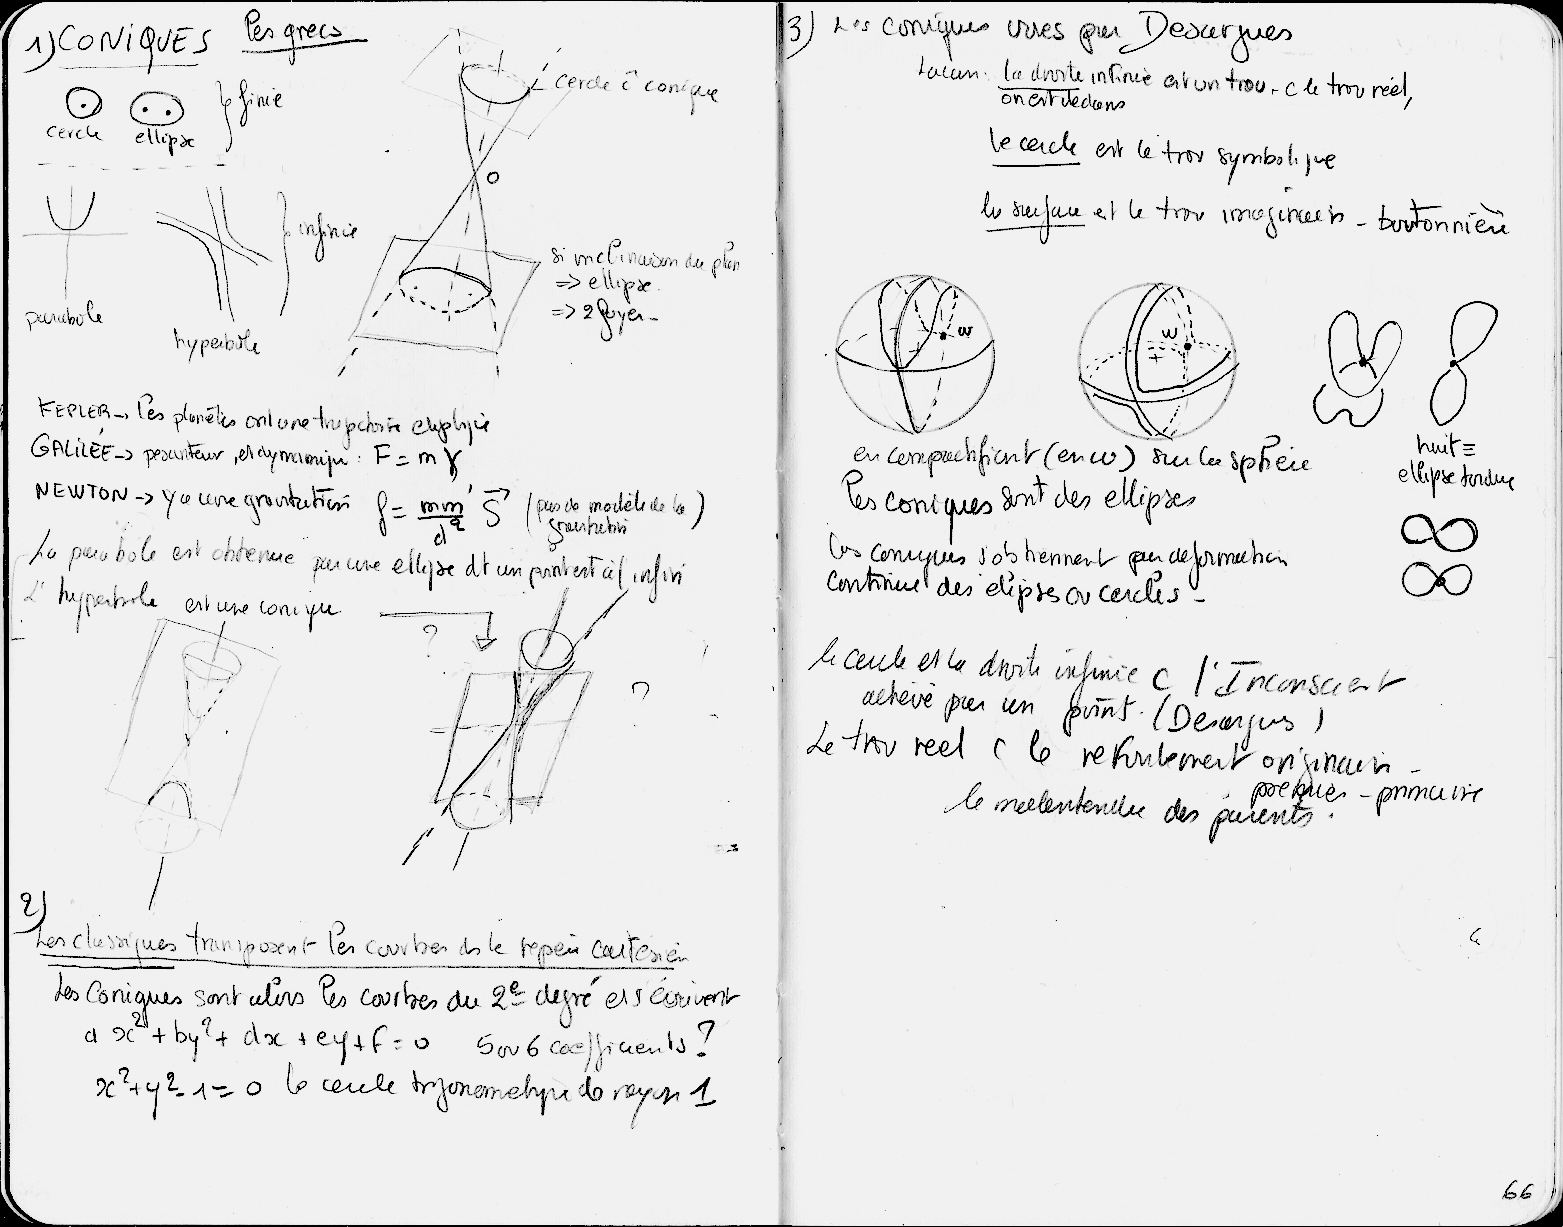 1) CONIQUES les grecs
cercle
ellipse
finie
parabole
hyperbole
infinie
cercle = conique
o
si inclinaison du plan
=> ellipse.
=> 2 foyer -
KEPLER -> les planètes ont une trajectoire elliptique
GALILÉE -> pesanteur, et dynamique : F = m γ
NEWTON -> y a une gravitation f = mm'/d² S (pas de modèle de la gravitation)
La parabole est obtenue par une ellipse dt un point est à l'infini
L'hyperbole est une conique
?
?
2)
Les classiques transposent les courbes ds le repère cartésien
Les coniques sont alors les courbes du 2e degré et s'écrivent
a x² + by² + dx + ey + f = 0 5 ou 6 coefficients ?
x² + y² - 1 = 0 le cercle trigonométrique de rayon 1
3) Les coniques vues par Desargues
Lacan : la droite infinie est un trou - c le trou réel,
on est dedans
le cercle est le trou symbolique
la surface est le trou imaginaire - boutonnière
w
w
en compactifiant (en w) sur la sphère
les coniques sont des ellipses
huit ≡
ellipse tordue
les coniques s'obtiennent par déformation
continue des elipses ou cercles -
le cercle et la droite infinie c l'Inconscient
achevé par un point. (Desargues)
Le trou réel c le refoulement originaire -
primaire
le malentendu des parents.
66